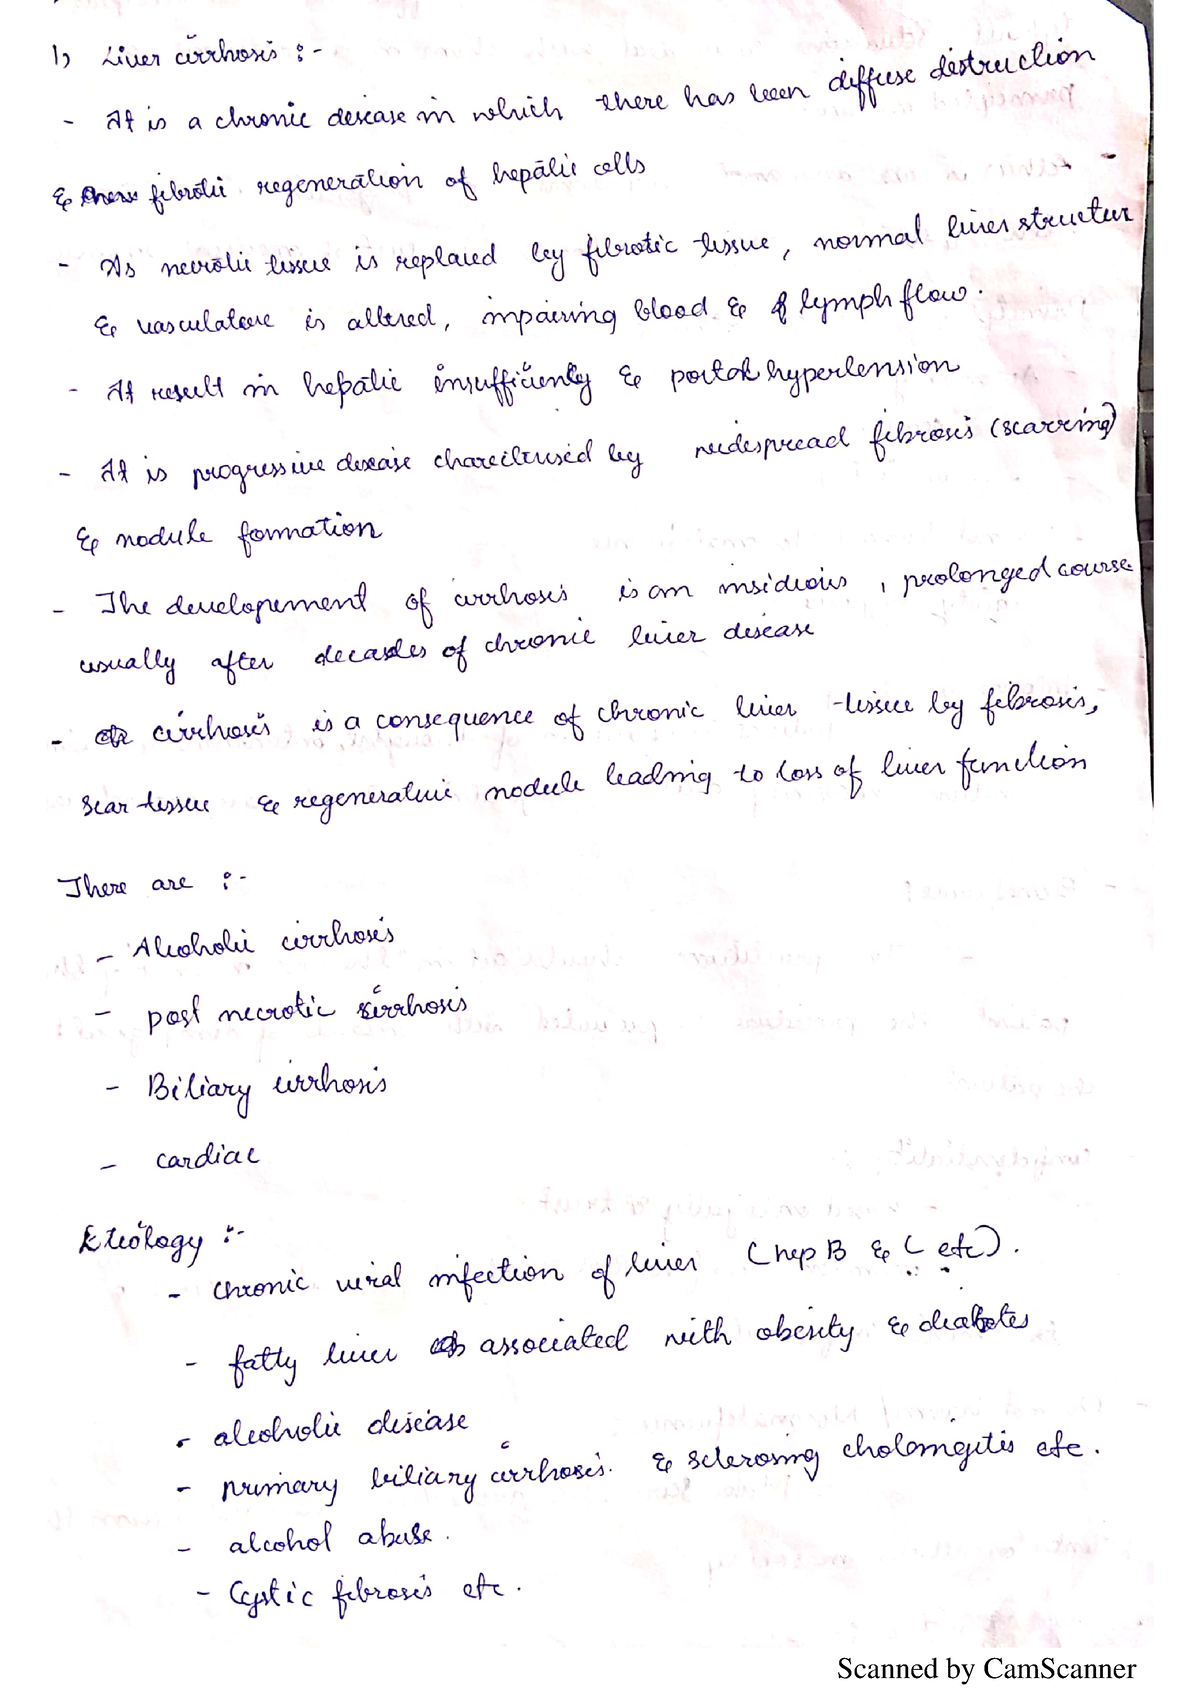 1) Liver cirrhosis :-
- It is a chronic disease in which there has been diffuse distruction
& fibrotic regeneration of hepatic cells
- As necrotic tissue is replaced by fibrotic tissue, normal liver structur
& vasculature is altered, impairing blood & lymph flow.
- It result in hepatic insufficiently & portal hypertension
- It is progressive disease charecterised by widespread fibrosis (scarring)
& nodule formation
- The developement of cirrhosis is an insidious, prolonged course
usually after decades of chronic liver disease
- cirrhosis is a consequence of chronic liver tissue by fibrosis,
scar tissue & regenerative nodule leading to loss of liver function
There are :-
- Alcoholic cirrhosis
- post necrotic cirrhosis
- Biliary cirrhosis
- cardiac
Etiology :-
- chronic viral infection of liver (hep B & C etc).
- fatty liver associated with obesity & diabetes
- alcoholic disease
- primary biliary cirrhosis. & sclerosing cholangitis etc.
- alcohol abuse.
- Cystic fibrosis etc.
Scanned by CamScanner